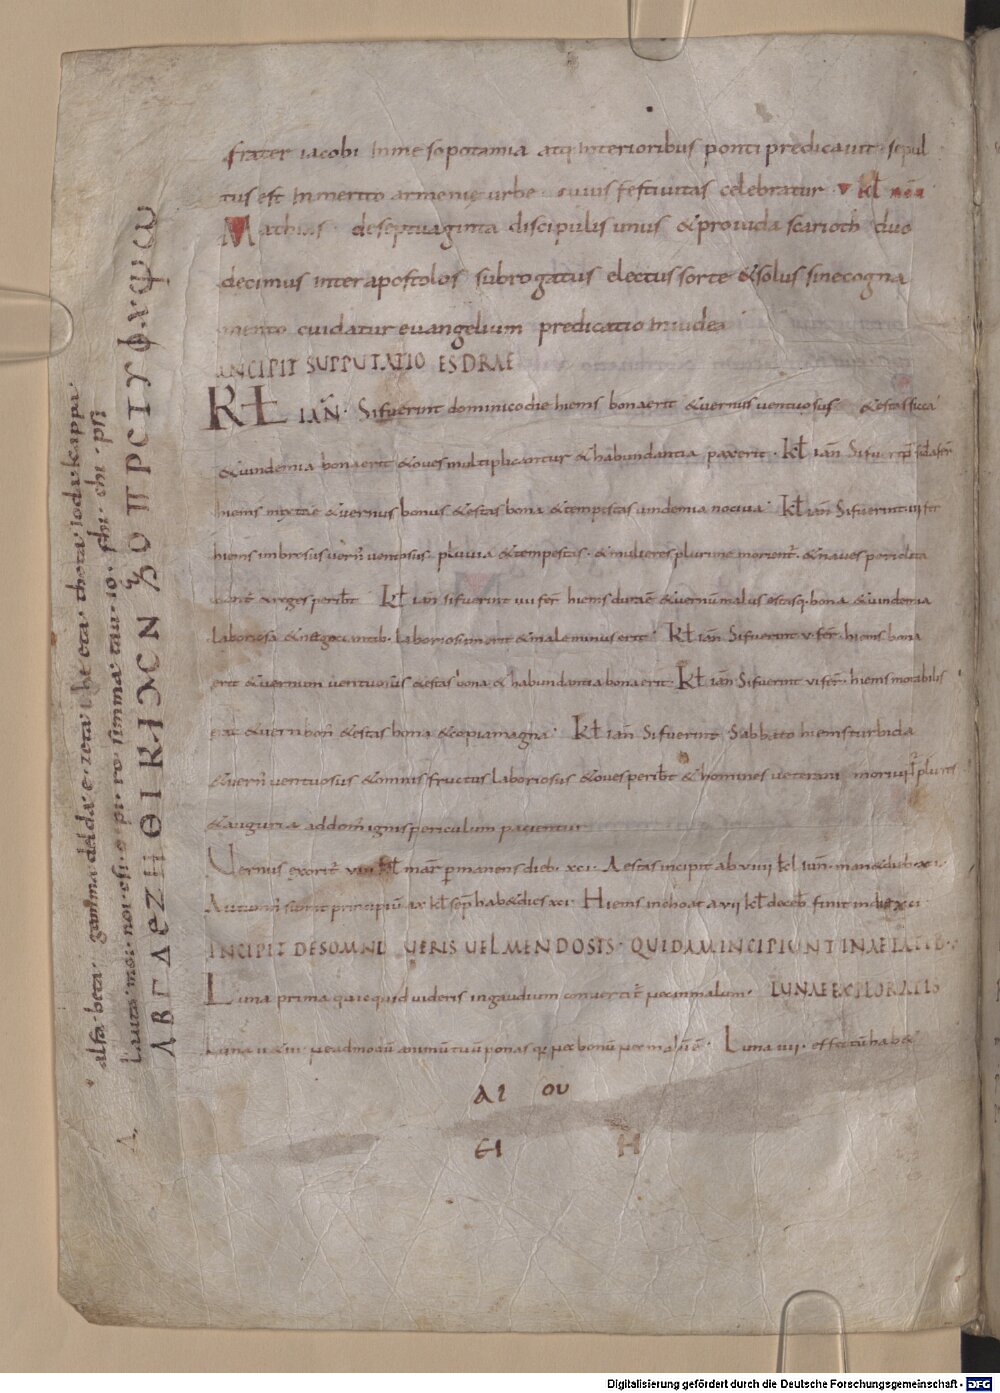 frater iacobi Inmesopotamia atq; Interioribus ponti predicauit· sepul
tus est Inmerito armenie urbe· cuius festiuitas celebratur v kł
Mathias deseptuaginta discipulis unus &prouida scarioth duo
decimus inter apostolos subrogatus electus sorte &solus sinecogna
mento cuidatur euangelium predicatio Iniudea
INCIPIT SUPPUTATIO ESDRAE
KŁ IAN̄· Sifuerint dominico die hiems bonaerit &uernus uentuosus &estas sicca
&uindemia bonaerit &oues multiplicantur &habundantia paxerit· kł ian̄ Sifuerint
hiems mixta ē &uernus bonus &estas bona &tempestas uindemia nociua· kł ian̄ Sifuerint iii fer
hiems imbrosus uern̄ uentosus· pluuia &tempestas· &mulieres plurime morient̄· &naues periclita
&reges peribt̄ kł ian̄ sifuerint iiii fer̄ hiems dura ē &uernū malus estasq· bona &uindemia
laboriosa &negociantib· laboriosum erit &male minus erit· kł ian̄ Sifuerint v fer̄· hiems bona
erit &uernum uentuosus &estas bona &habundantia bonaerit· kł ian̄ Sifuerint vi fer̄· hiems motabilis
erit &uern bon̄ &estas bona &copia magna· kł ian̄ Sifuerint Sabbato hiems turbida
&uern̄ uentuosus &omnis fructus laboriosus &oues peribt̄ &homines ueterani plures
&auguria ad dom̄ ignis periculum pacientur
Vernus exorit̄ viii kł mar̄ p̄manens dieb· xci· Aestas incipit ab viiii kl iun̄· man& dieb· xci·
Autum̄ sumit principiū ax kł sep̄t hab& dies xci· Hiems inchoat a vii kł deceb̄ finit in dieb xci
INCIPIT DESOMNI UERIS UEL MENDOSIS· QUIDAM INCIPIUNT INAETATE
Luna prima quicquid uideris ingaudium conuertit̄ nec inmalum· LUNAE EXPLORATIS
Luna ii &iii· nec admodū animū tuū ponas quia nec bonū nec malū ē· Luna iiii· effectū hab&
AI OU
EI H
alfa· beta· gamma· delda· e· zeta· he eta· theta· ioda· kappa·
lauta· moi· noi· exi· o· pi· ro· simma· tau· io· phi· chi· psi
Α Β Γ Δ Є Ζ Η Θ Ι Κ Λ Ͻ Ϲ Ν Ʒ Ο Π Ρ Ϲ Τ Υ Φ Χ Ψ Ω
Δ
Digitalisierung gefördert durch die Deutsche Forschungsgemeinschaft - DFG